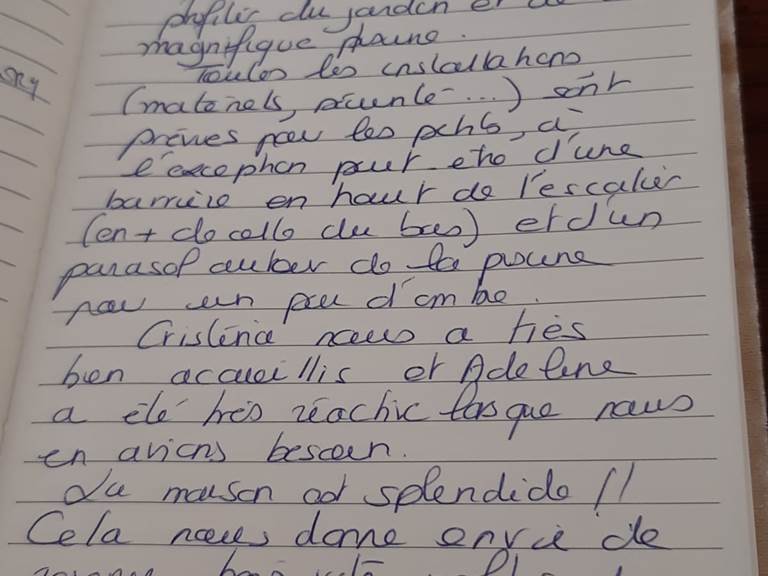 profiter du jardin et de
magnifique piscine.
Toutes les installations
(matériels, sécurité...) sont
prévues pour les petits, à
l'exception peut être d'une
barrière en haut de l'escalier
(en + de celle du bas) et d'un
parasol autour de la piscine
pour un peu d'ombre.
Cristina nous a très
bien accueillis et Adeline
a été très réactive lorsque nous
en avions besoin.
La maison est splendide !!
Cela nous donne envie de